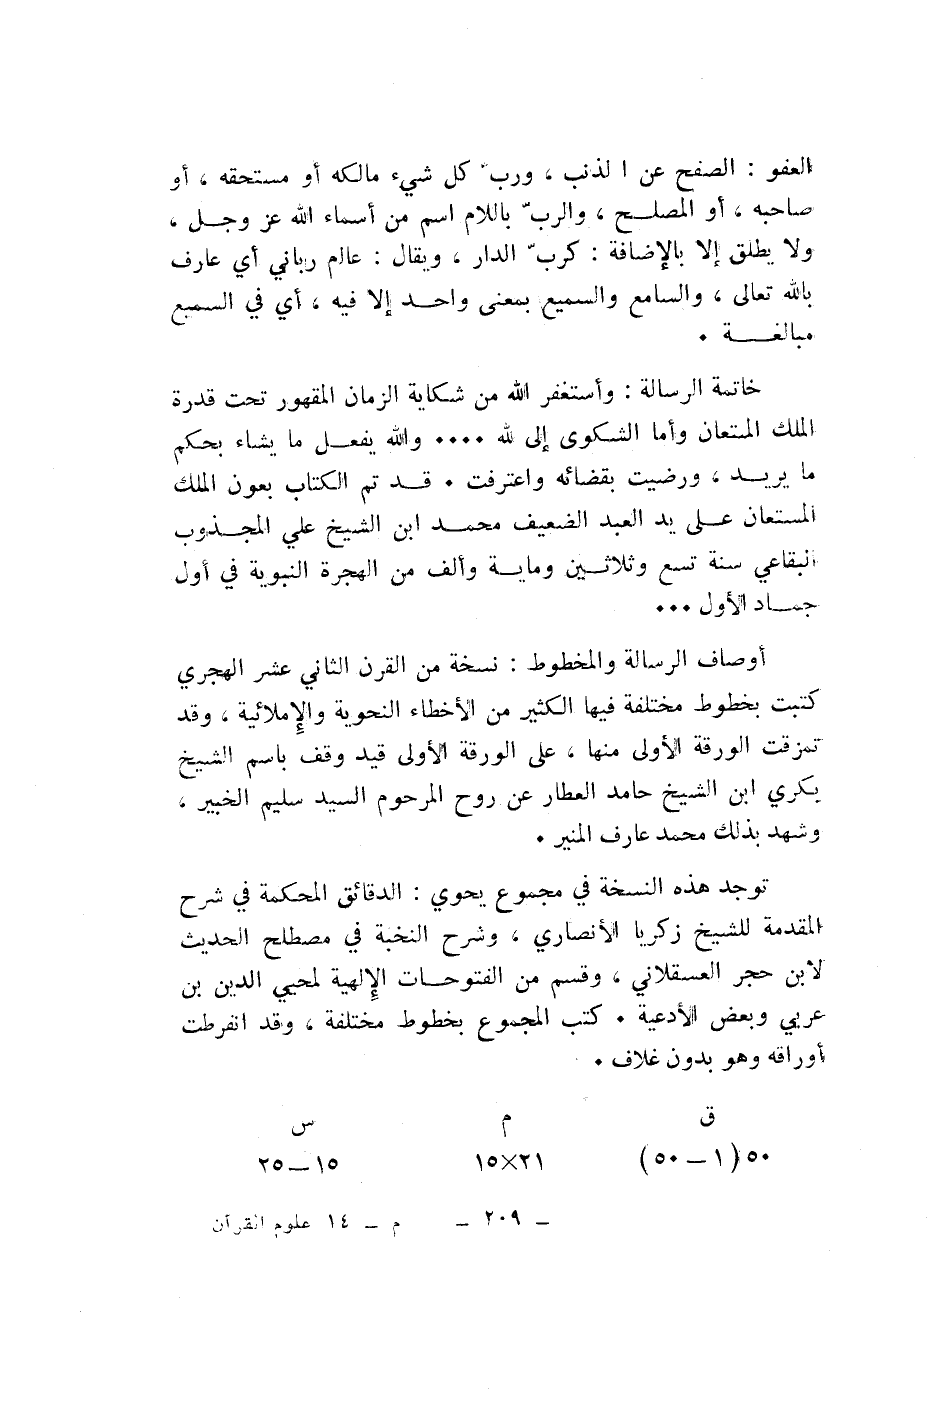 العفو : الصفح عن ا لذنب ، وربّ كل شيء مالكه أو مستحقه ، أو
صاحبه ، أو المصلح ، والربّ باللام اسم من أسماء الله عز وجل ،
ولا يطلق إلا بالإضافة : كربّ الدار ، ويقال : عالم رباني أي عارف
بالله تعالى ، والسامع والسميع بمعنى واحد إلا فيه ، أي في السميع
مبالغة .
خاتمة الرسالة : وأستغفر الله من شكاية الزمان المقهور تحت قدرة
الملك المتعان وأما الشكوى إلى لله .... والله يفعل ما يشاء بحكم
ما يريد ، ورضيت بقضائه واعترفت . قد تم الكتاب بعون الملك
المستعان على يد العبد الضعيف محمد ابن الشيخ علي المجذوب
البقاعي سنة تسع وثلاثين وماية وألف من الهجرة النبوية في أول
جماد الأول ...
أوصاف الرسالة والمخطوط : نسخة من القرن الثاني عشر الهجري
كتبت بخطوط مختلفة فيها الكثير من الأخطاء النحوية والإملائية ، وقد
تمزقت الورقة الأولى منها ، على الورقة الأولى قيد وقف باسم الشيخ
بكري ابن الشيخ حامد العطار عن روح المرحوم السيد سليم الخبير ،
وشهد بذلك محمد عارف المنير .
توجد هذه النسخة في مجموع يحوي : الدقائق المحكمة في شرح
المقدمة للشيخ زكريا الأنصاري ، وشرح النخبة في مصطلح الحديث
لابن حجر العسقلاني ، وقسم من الفتوحات الإلهية لمحيي الدين بن
عربي وبعض الأدعية . كتب المجموع بخطوط مختلفة ، وقد انفرطت
أوراقه وهو بدون غلاف .
ق م س
٥٠ (١ – ٥٠) ٢١×١٥ ١٥–٢٥
– ٢٠٩ – م – ١٤ علوم القرآن